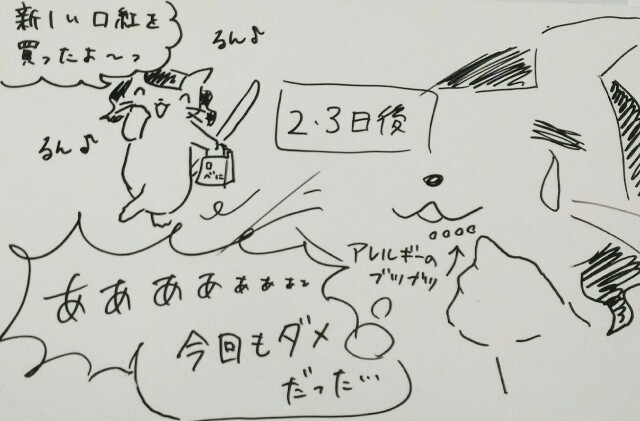 新しい口紅を
買ったよ〜っ
るん♪
るん♪
口
べに
2・3日後
アレルギーの
ブツブツ
あぁぁぁぁぁぁぁ
今回もダメ
だった…